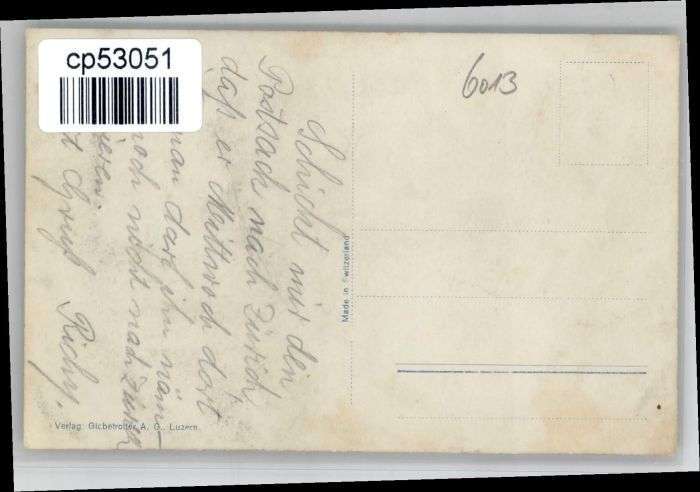 cp53051
6013
Schickt mir den
Postsack nach Zürich,
daß er Mittwoch dort
man darf ihn näm-
noch nicht nach Zürich
ieren.
t Gruß Richy.
Made in Switzerland
Verlag: Globetrotter A. G., Luzern.